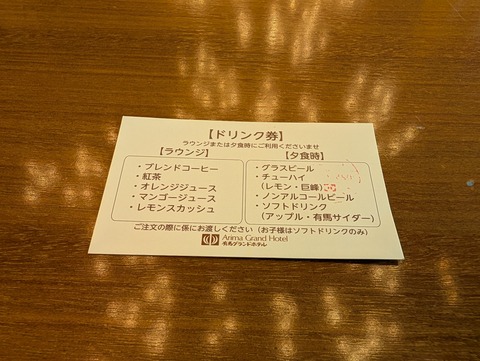 【ドリンク券】
ラウンジまたは夕食時にご利用くださいませ
【ラウンジ】
・ブレンドコーヒー
・紅茶
・オレンジジュース
・マンゴージュース
・レモンスカッシュ
【夕食時】
・グラスビール
・チューハイ
（レモン・巨峰）
・ノンアルコールビール
・ソフトドリンク
（アップル・有馬サイダー）
ご注文の際に係にお渡しください（お子様はソフトドリンクのみ）
Arima Grand Hotel
有馬グランドホテル